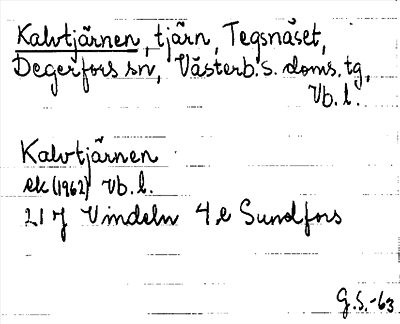 Kalvtjärnen, tjärn, Tegsnäset,
Degerfors sn, Västerb. s. doms. tg,
Vb. l.
Kalvtjärnen
ek (1962) Vb. l.
21 J Vindeln 4 e Sundfors
G.S.-63